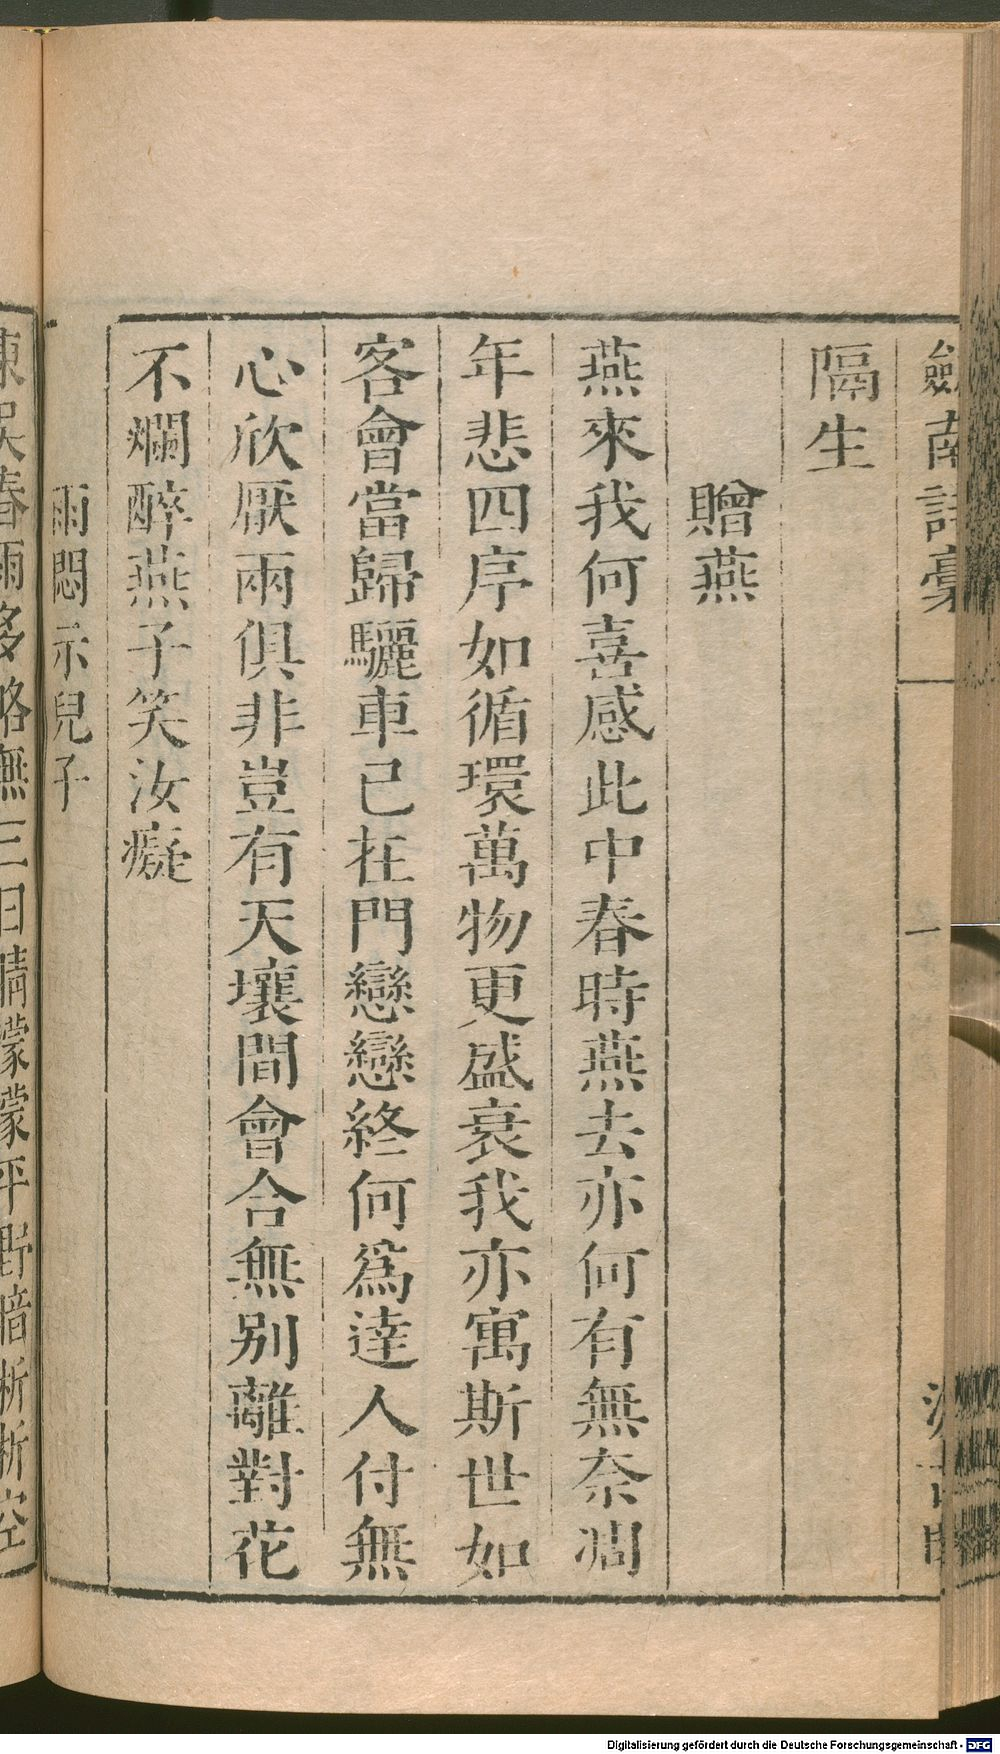 劍南詩稾
一
隔生
贈燕
燕來我何喜感此中春時燕去亦何有無奈凋
年悲四序如循環萬物更盛衰我亦寓斯世如
客會當歸驪車已在門戀戀終何爲達人付無
心欣厭兩俱非豈有天壤間會合無别離對花
不爛醉燕子笑汝癡
雨悶示兒子
東吳春雨多略無三日晴濛濛平野暗淅淅空
Digitalisierung gefördert durch die Deutsche Forschungsgemeinschaft - DFG